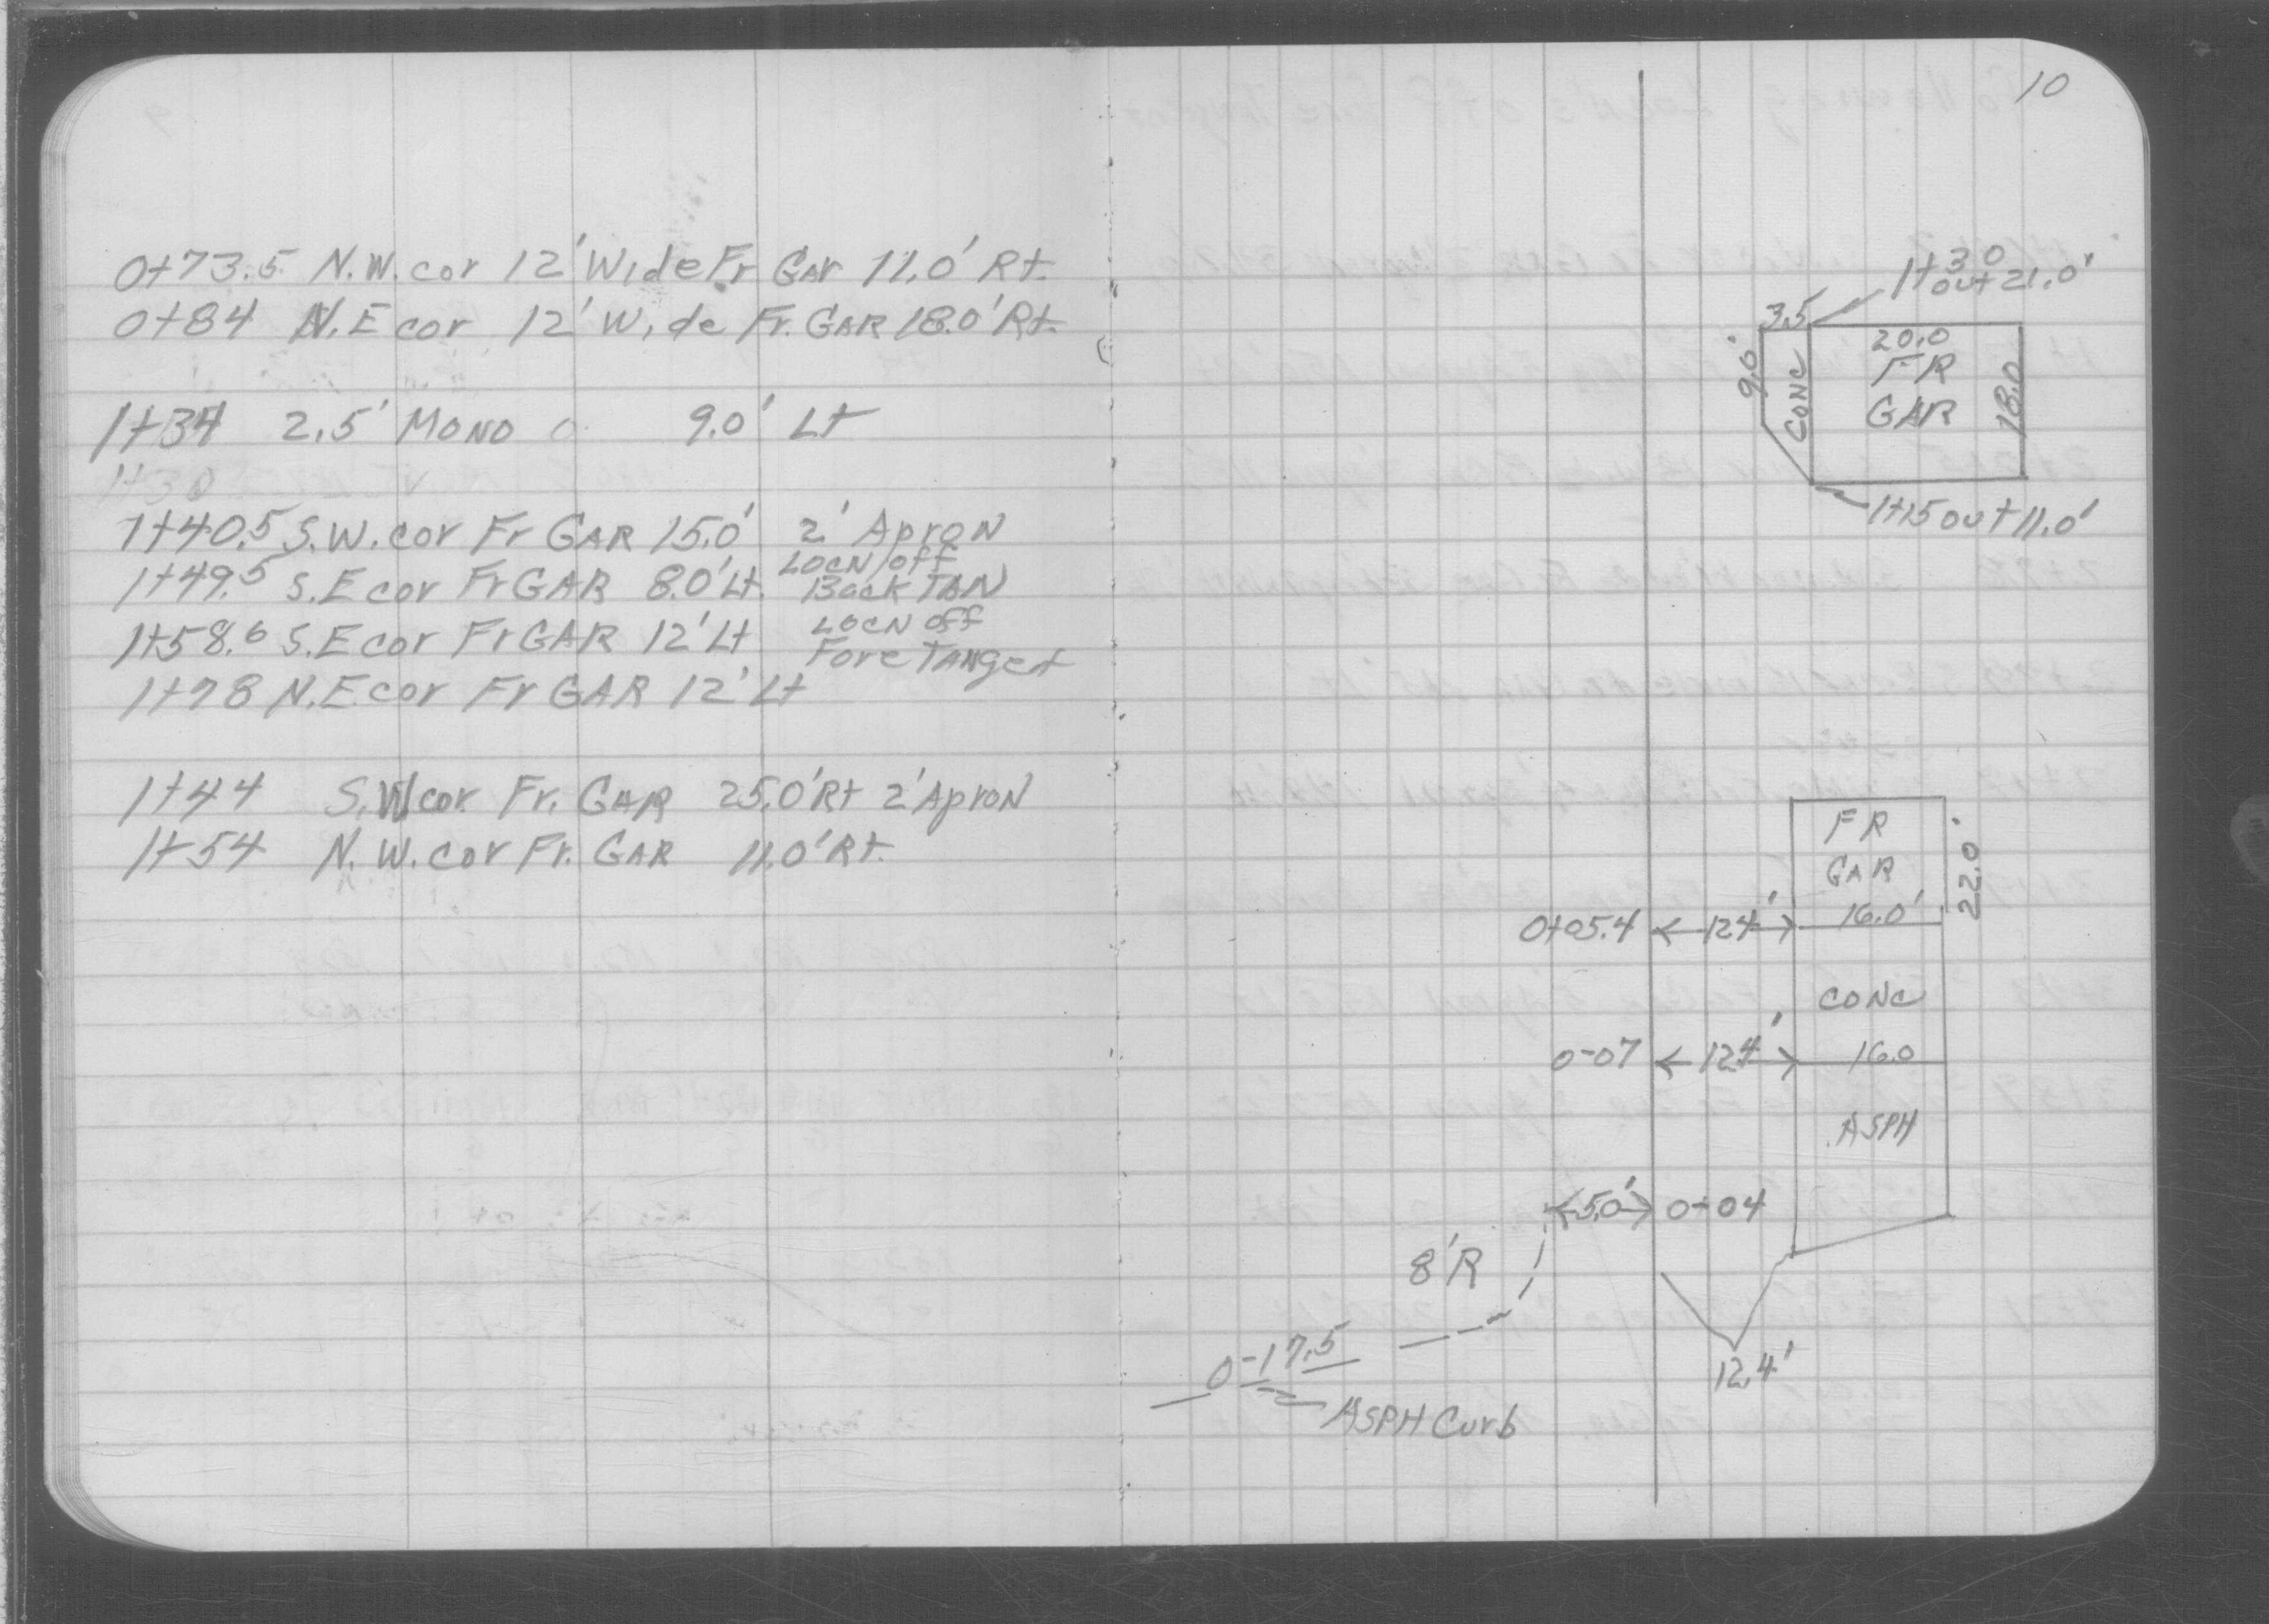 0+73.5 N.W. cor 12' Wide Fr Gar 11.0' Rt.
0+84 N.E cor 12' Wide Fr. GAR 18.0' Rt.
1+34 2.5' MONO 9.0' Lt
1+30
1+40.5 S.W. cor Fr GAR 15.0' 2' Apron
1+49.5 S.E cor Fr GAR 8.0' Lt. LOCN off Back TAN
1+58.6 S.E cor Fr GAR 12' Lt LOCN off Fore TANget
1+78 N.E. cor Fr GAR 12' Lt
1+44 S.W cor Fr. GAR 25.0' Rt 2' Apron
1+54 N.W. cor Fr. GAR 11.0' Rt.
10
1+30
out 21.0'
3.5
20.0
9.0'
CONC
FR
GAR
18.0
1+15 out 11.0'
FR
GAR
22.0'
16.0'
0+05.4 12.4'
CONC
0-07 12.4'
16.0
ASPH
5.0' 0+04
8'R
0-17.5
12.4'
ASPH Curb